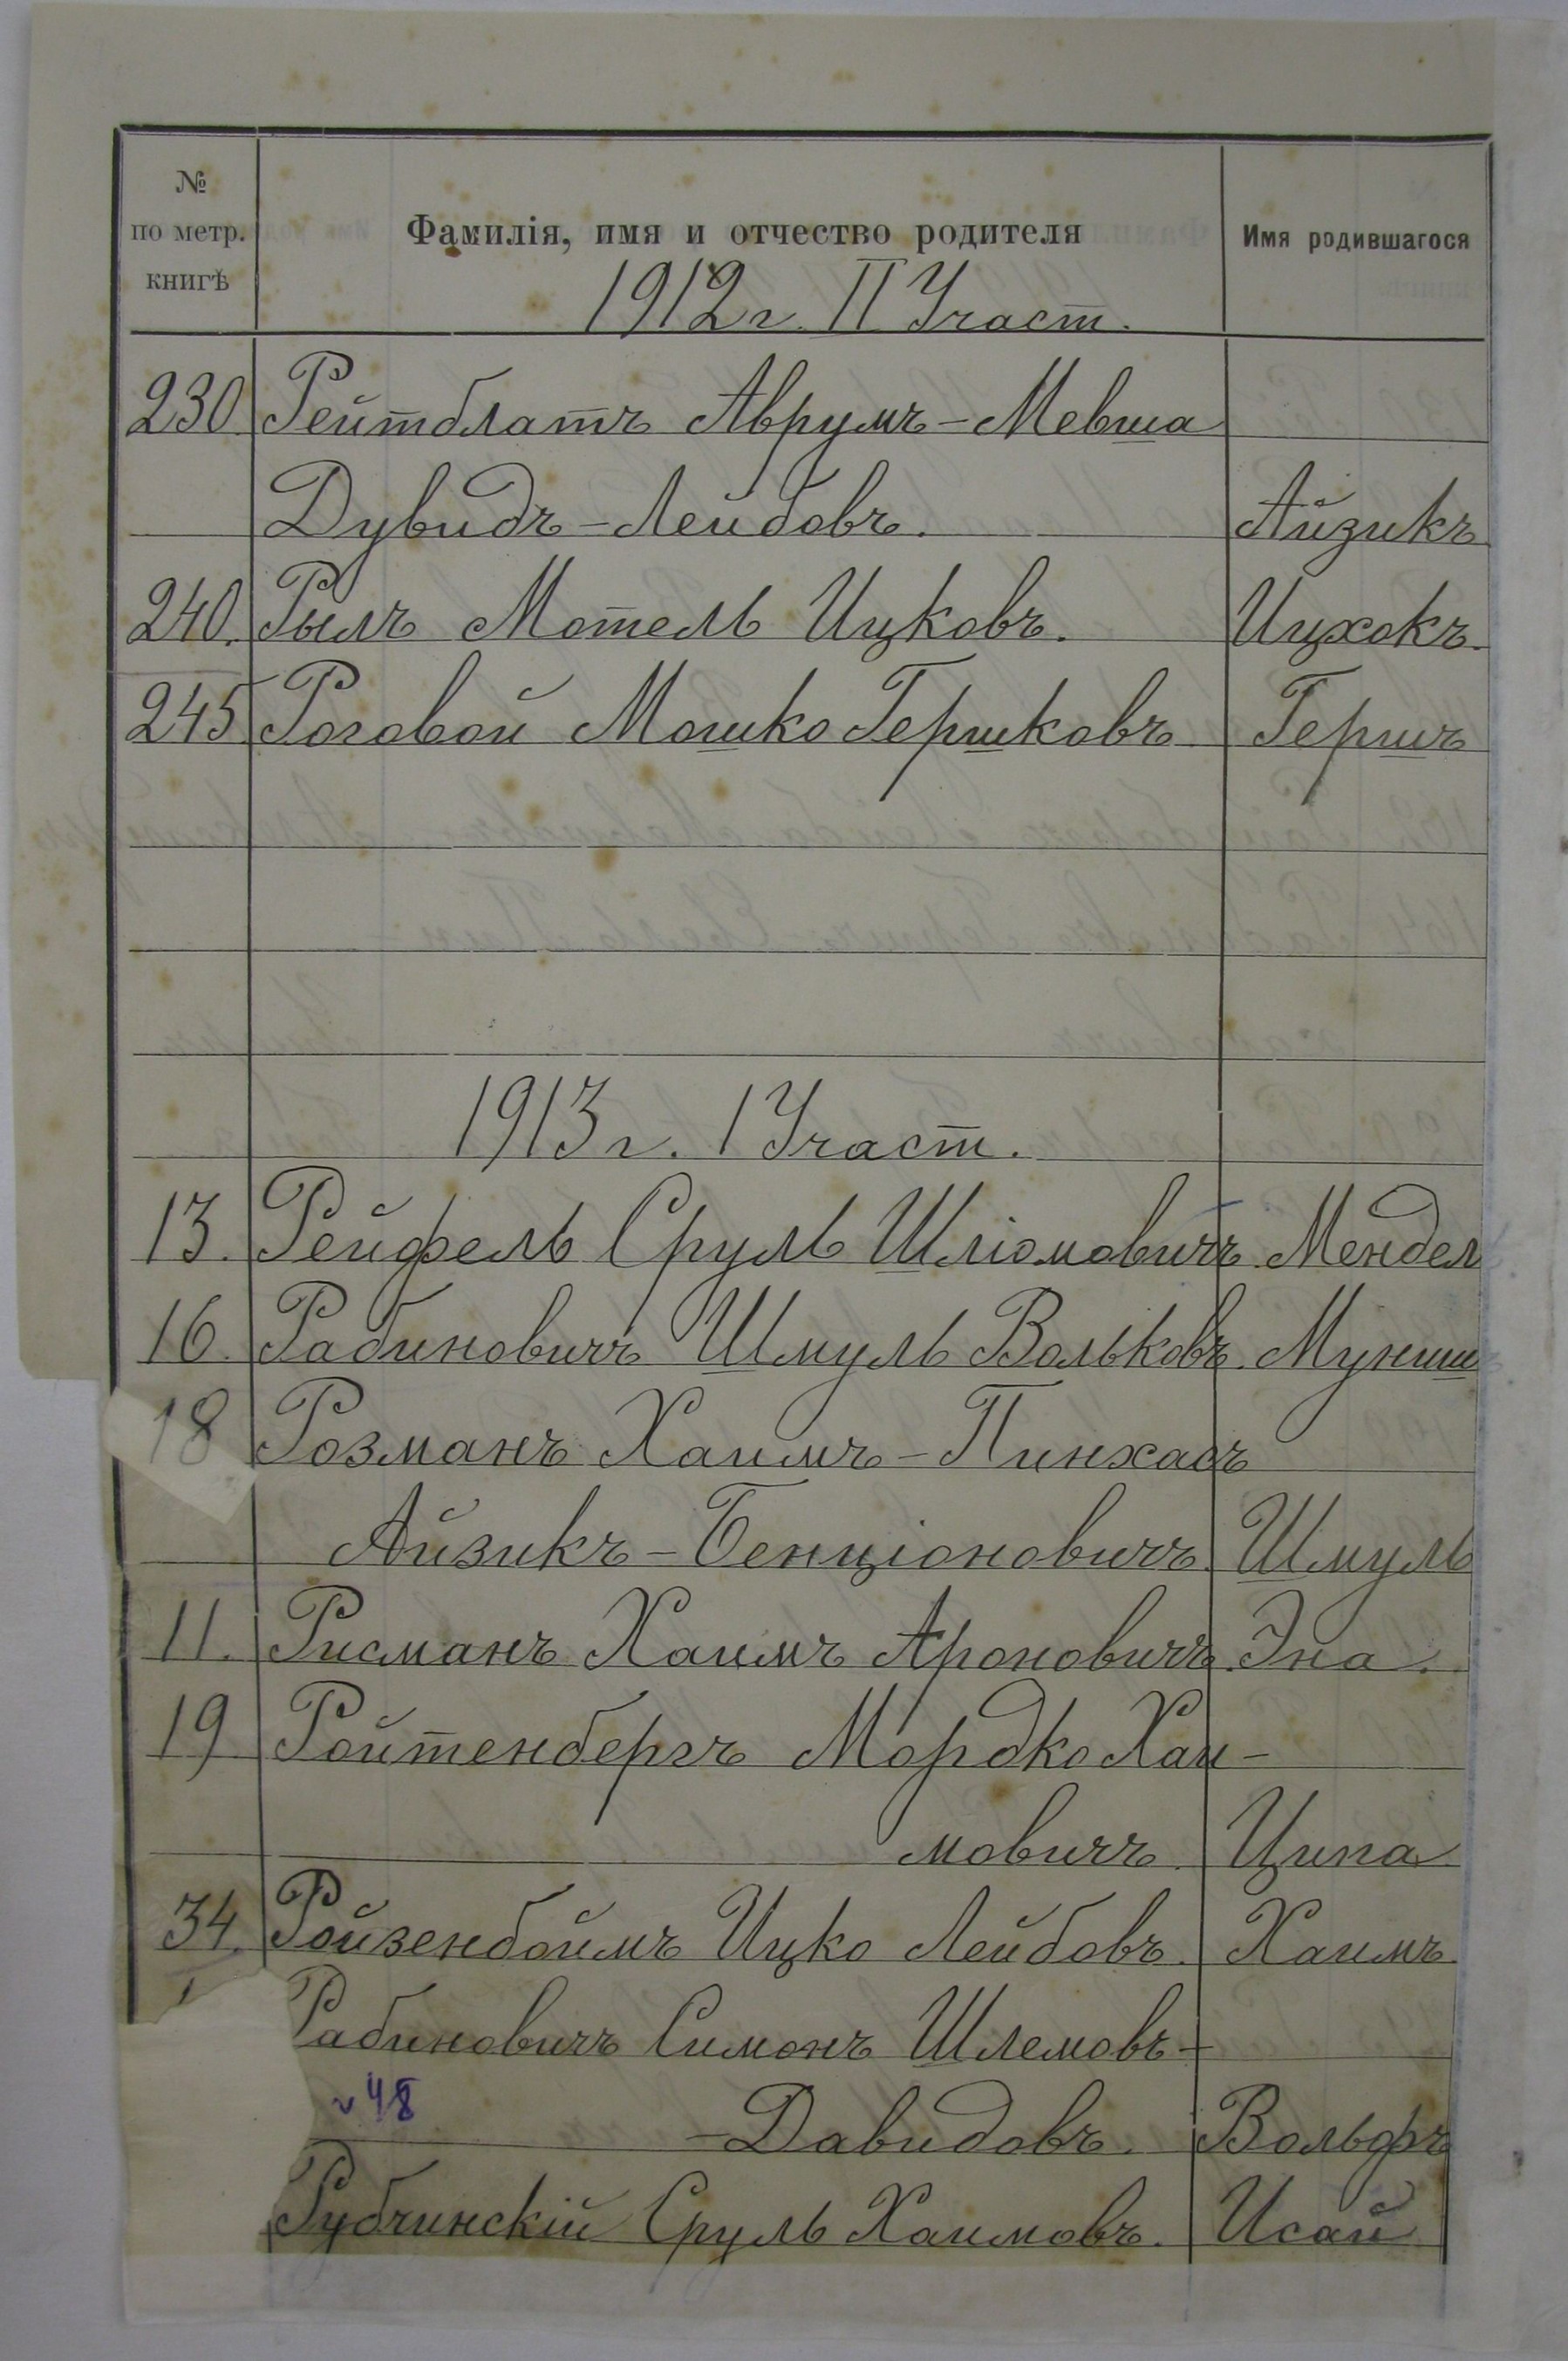 № по метр. книгѣ Фамилія, имя и отчество родителя Имя родившагося
1912 г. II Участ.
230. Рейтблатъ Аврумъ-Мевша
Дувидъ-Лейбовъ. Айзикъ
240. Рылъ Мотель Ицковъ. Ицхокъ.
245 Роговой Мошко Гершковъ Гершъ
1913 г. I Участ.
13. Рейфель Сруль Шліомовичъ Мендел
16. Рабиновичъ Шмуль Вольковъ. Муниш
18 Розманъ Хаимъ-Пинхасъ
Айзикъ-Бенціоновичъ. Шмуль
11. Рисманъ Хаимъ Ароновичъ. Эна.
19 Ройтенбергъ Мордко Хаи-
мовичъ. Ципа
34. Ройзенбоймъ Ицко Лейбовъ. Хаимъ.
Рабиновичъ Симонъ Шлемовъ-
48
-Давидовъ. Вольфъ
Рубчинскій Сруль Хаимовъ. Исай